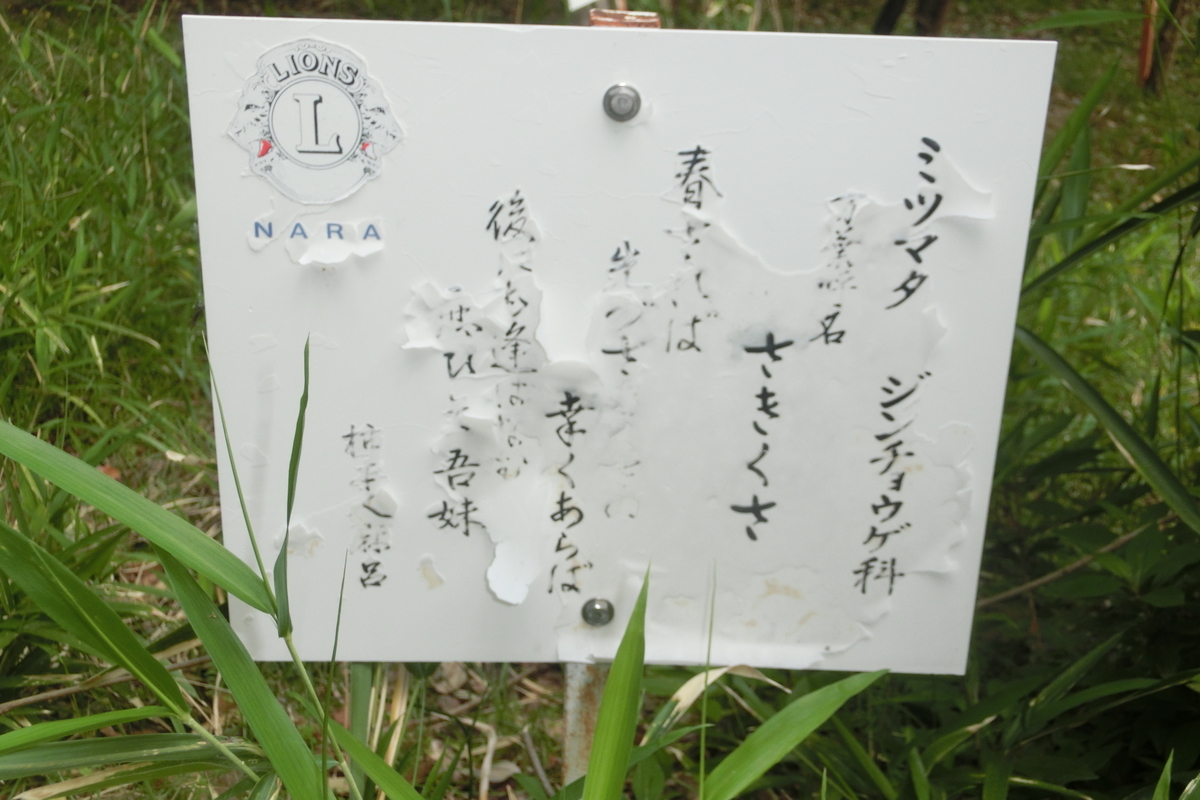 ミツマタ ジンチョウゲ科
万葉名
さきくさ
春されば
幸くあらば
後にも逢
恋ひそ吾妹
柿本人麻呂
LIONS
L
NARA